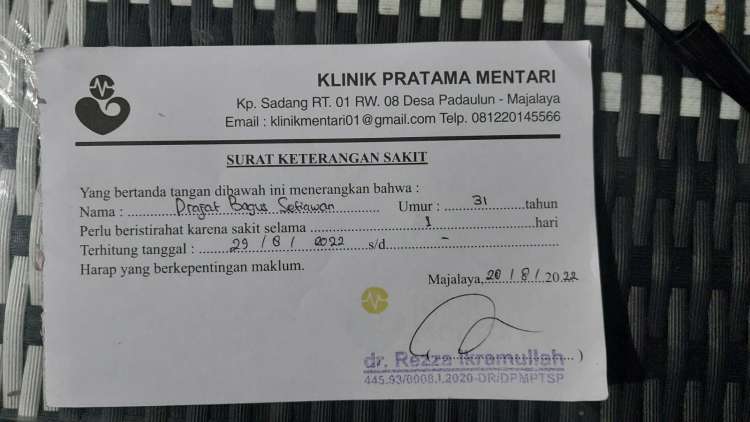 KLINIK PRATAMA MENTARI
Kp. Sadang RT. 01 RW. 08 Desa Padaulun - Majalaya
Email : klinikmentari01@gmail.com Telp. 081220145566
SURAT KETERANGAN SAKIT
Yang bertanda tangan dibawah ini menerangkan bahwa :
Nama : Drajat Bagus Setiawan Umur : 31 tahun
Perlu beristirahat karena sakit selama 1 hari
Terhitung tanggal : 29 / 8 / 2022 s/d -
Harap yang berkepentingan maklum.
Majalaya, 20 / 8 / 2022
dr. Rezza Ikramullah
(....................)
445.93/0008.1.2020-DR/DPMPTSP